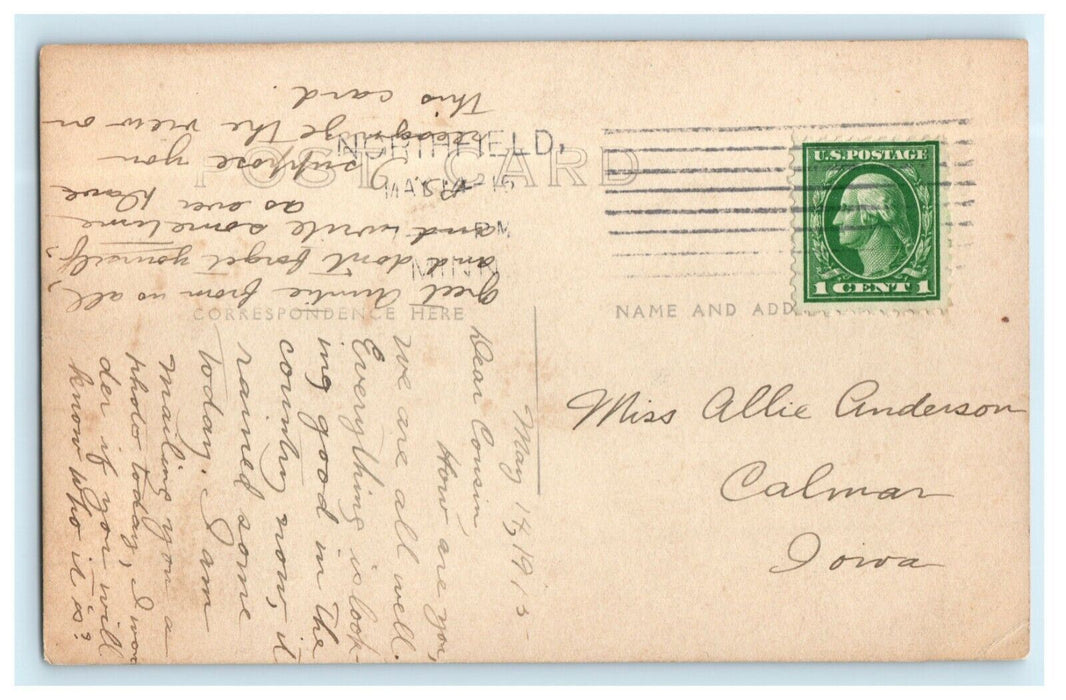 POST CARD
NORTHFIELD,
MINN
U.S. POSTAGE
1 CENT 1
CORRESPONDENCE HERE
NAME AND ADD
Miss Allie Anderson
Calmar
Iowa
May 17, 1915
Dear Cousin
How are you,
We are all well.
Everything is look-
ing good in the
country now, it
rained some
today. I am
mailing you a
photo today, I won
der if you will
know who it is?
Greet Auntie from us all,
and don't forget yourself,
and write sometime
as ever
suppose you
recognize the view on
this card.